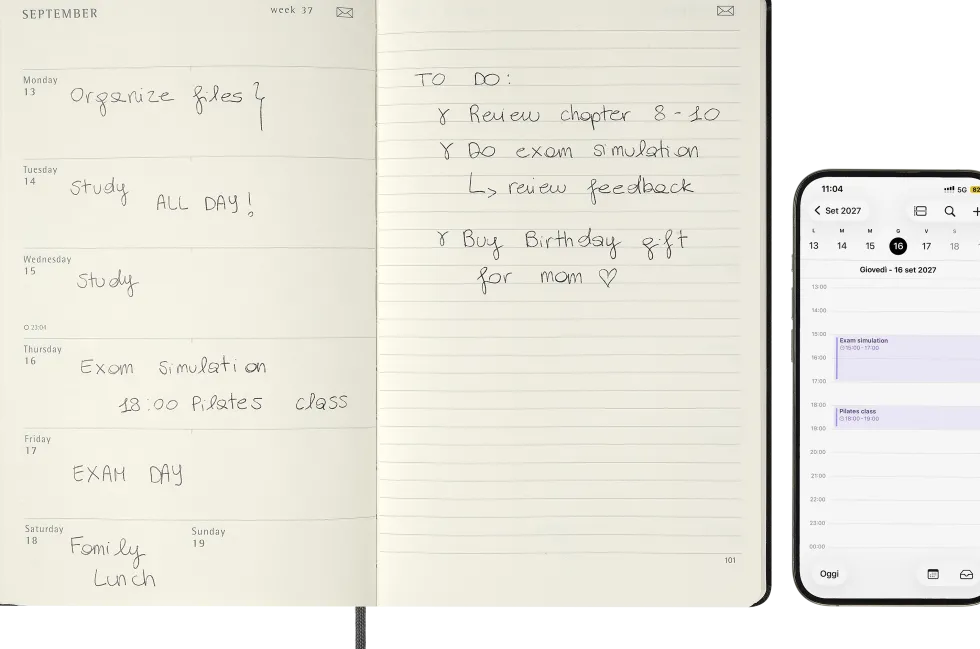 SEPTEMBER week 37
Monday
13
Organize files
Tuesday
14
Study
ALL DAY!
Wednesday
15
Study
23:04
Thursday
16
Exam simulation
18:00 Pilates class
Friday
17
EXAM DAY
Saturday
18
Sunday
19
Family
Lunch
TO DO:
Review chapter 8-10
Do exam simulation
↳ review feedback
Buy Birthday gift
for mom ♡
101
11:04 5G 82
Set 2027
L M M G V S
13 14 15 16 17 18
Giovedì - 16 set 2027
13:00
14:00
15:00
Exam simulation
15:00-17:00
16:00
17:00
18:00
Pilates class
18:00-19:00
19:00
20:00
21:00
22:00
23:00
00:00
Oggi